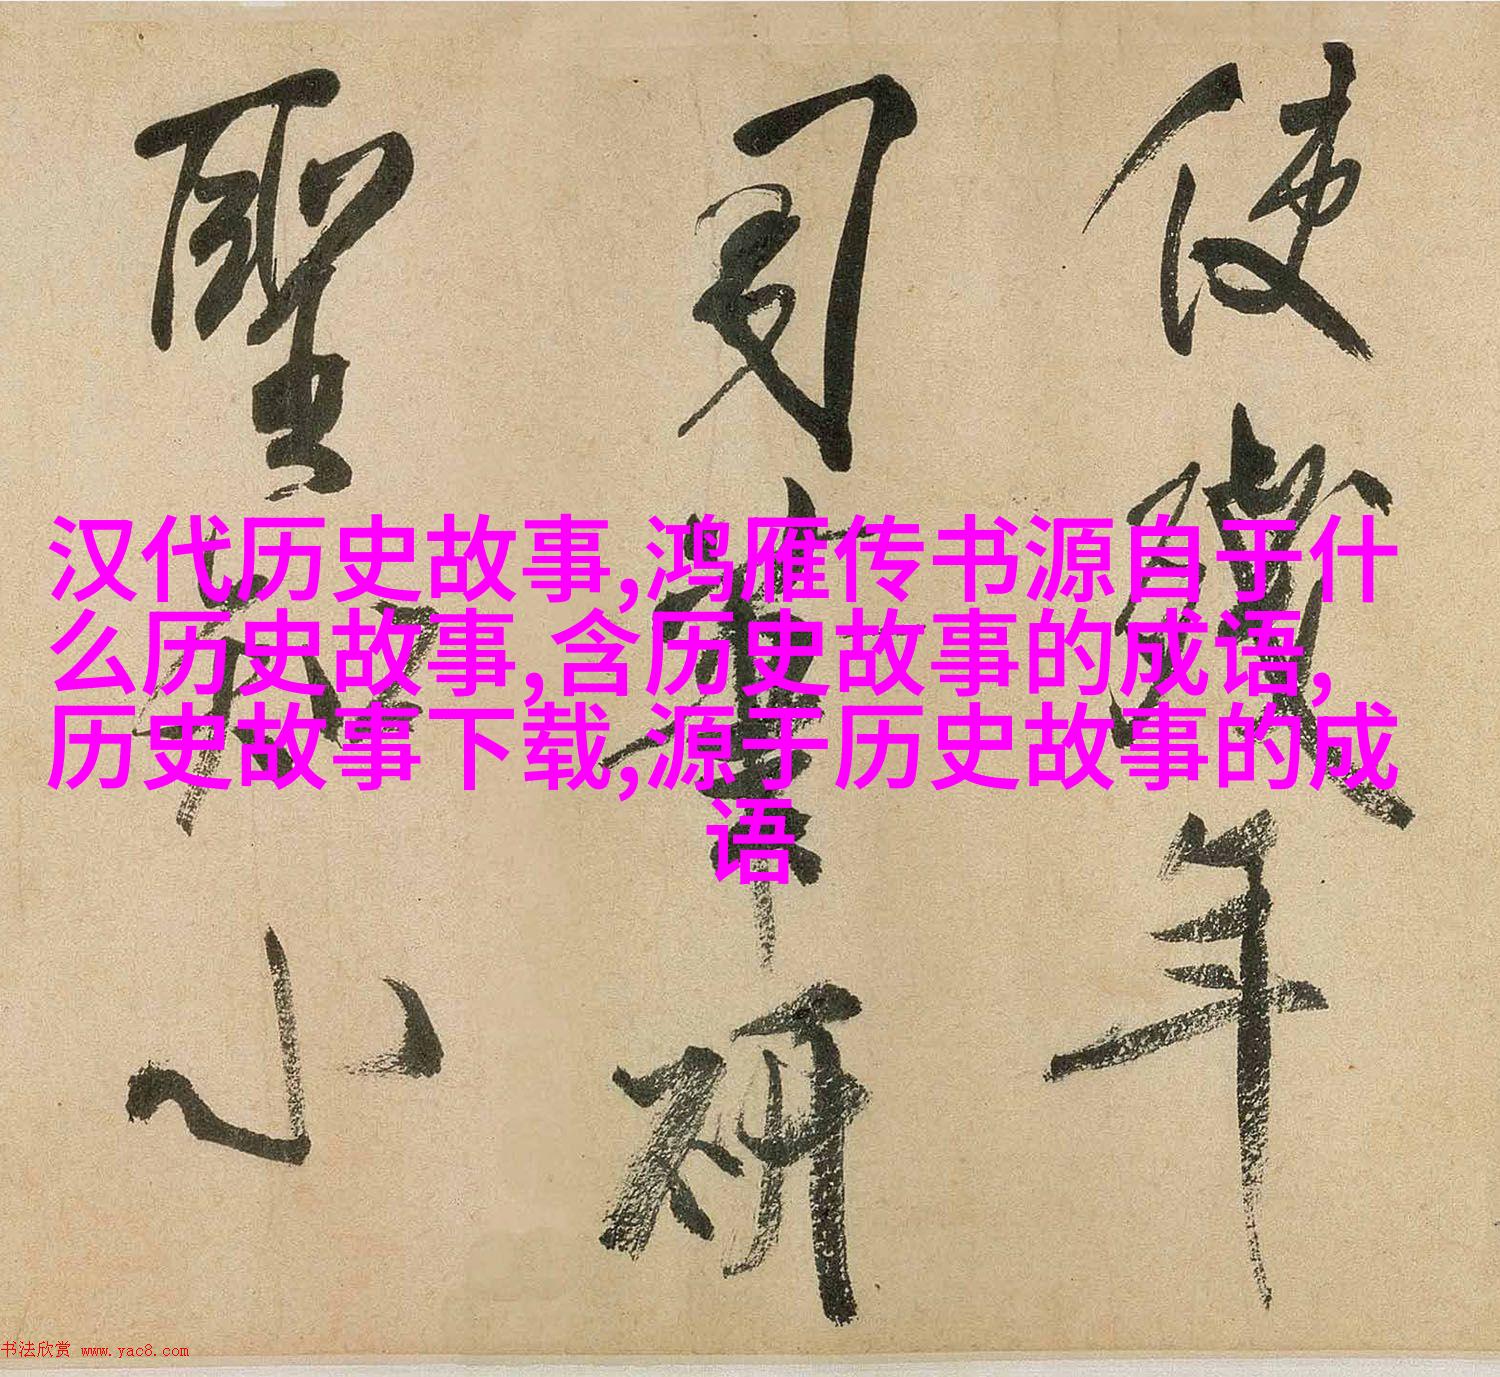 汉代历史故事,鸿雁传书源自于什
么历史故事,含历史故事的成语,
历史故事下载,源于历史故事的成
语
使
年
司
研
聖
小
书法欣赏 www.yac8.com